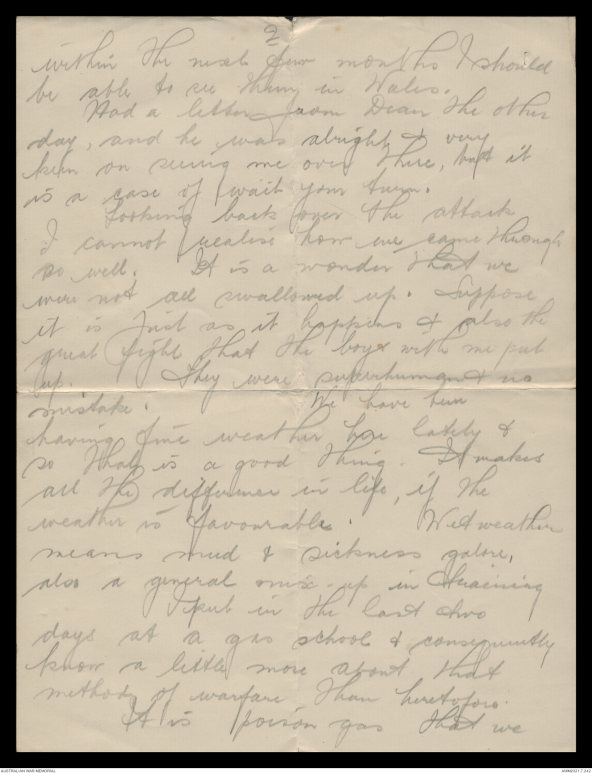 2
within the next few months I should
be able to see them in Wales.
Had a letter from Dean the other
day, and he was alright & very
keen on seeing me over there, but it
is a case of wait your turn.
Looking back over the attack
I cannot realise how we came through
so well. It is a wonder that we
were not all swallowed up. Suppose
it is just as it happens & also the
great fight that the boys with me put
up. They were superhuman & no
mistake. We have been
having fine weather here lately &
so that is a good thing. It makes
all the difference in life, if the
weather is favourable. Wet weather
means mud & sickness galore,
also a general mix-up in training
I put in the last two
days at a gas school & consequently
know a little more about that
method of warfare than heretofore.
It is poison gas that we
AUSTRALIAN WAR MEMORIAL